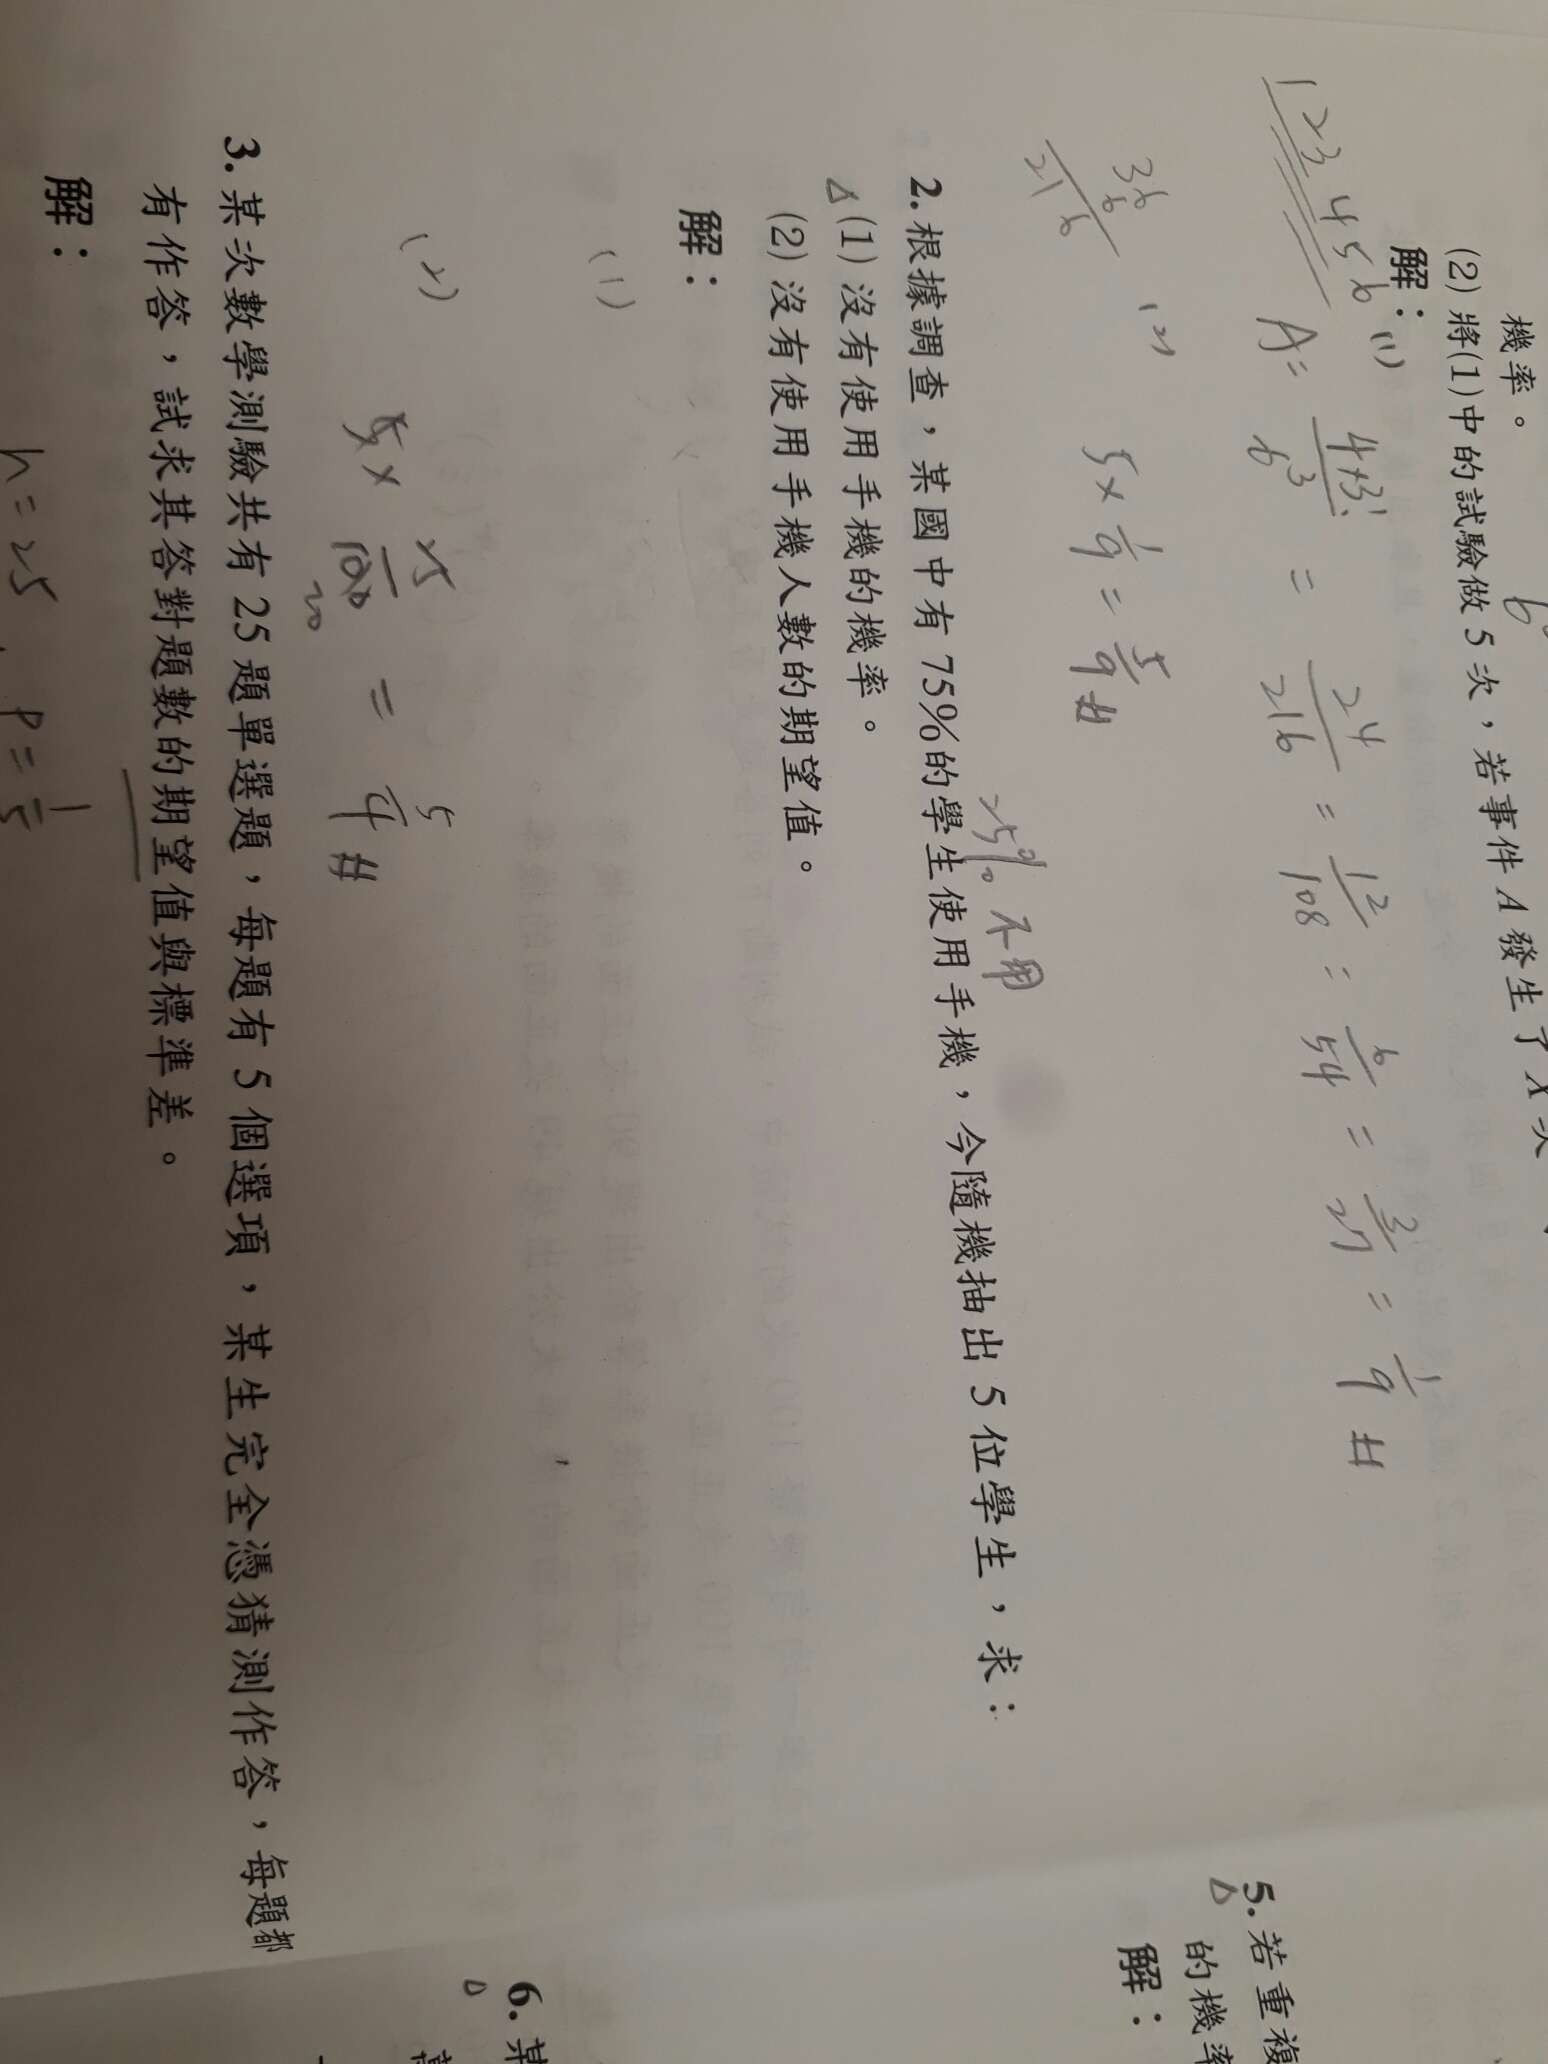 機率。
(2) 將(1)中的試驗做 5 次，若事件 A 發生了 X 次
解：(1)
1 2 3 4 5 6
A = 4×3! / 6³ = 24/216 = 12/108 = 6/54 = 3/27 = 1/9 #
36
6
216
(2) 5 × 1/9 = 5/9 #
25% 不用
2. 根據調查，某國中有 75%的學生使用手機，今隨機抽出 5 位學生，求：
△(1) 沒有使用手機的機率。
(2) 沒有使用手機人數的期望值。
解：
(1)
(2) 5 × 25/100 = 5/4 #
20
3. 某次數學測驗共有 25 題單選題，每題有 5 個選項，某生完全憑猜測作答，每題都
有作答，試求其答對題數的期望值與標準差。
解：
n = 25 , P = 1/5
5. 若重複
△ 的機率
解：
6. 某
△